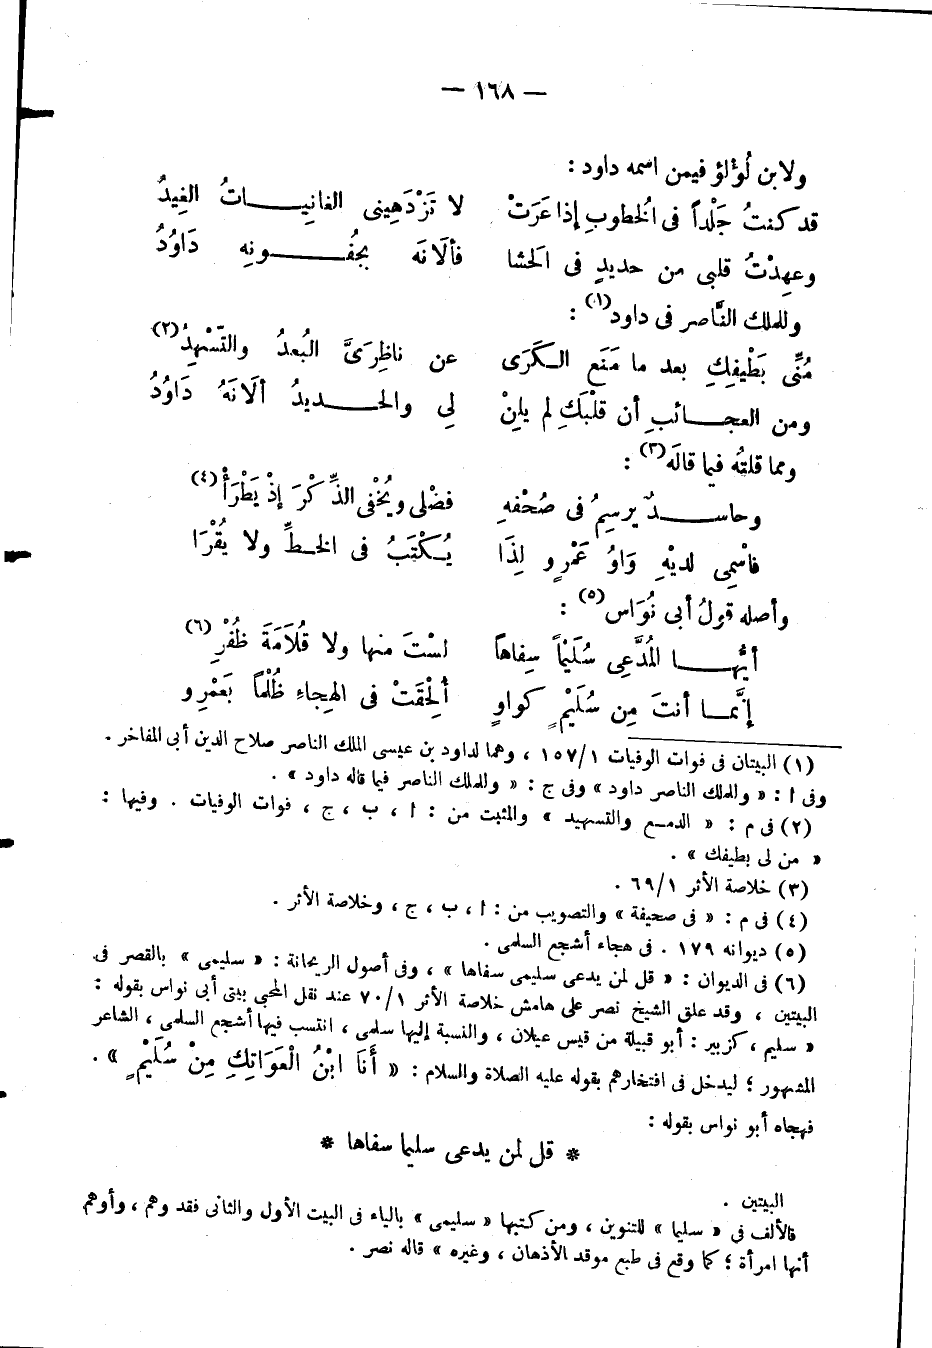 — ١٦٨ —
ولابن لُؤلؤ فيمن اسمه داود :
قد كنتُ جَلْداً فى الُخطوبِ إذا عَرَتْ لا تَزْدَهِينى الغانِيـــاتُ الغِيدُ
وعهِدْتُ قلبى من حديدٍ فى الَحشا فألَانَه بجُفُــــونِه دَاوُدُ
وللملك النَّاصر فى داود(١) :
مُنِّى بَطْيفِكِ بعد ما مَنَع الـكَرَى عن ناظِرَىَّ البُعدُ والتّسْهِيدُ(٢)
ومن العجـــائبِ أن قلْبَكِ لم يلِنْ لِى والحـــديدُ ألَانَهُ دَاوُدُ
ومما قلتُه فيما قالَه(٣) :
وحاســـدٌ يرسِمُ فى صُحْفهِ فضْلى ويُخْفى الذِّكْرَ إذْ يَطْرَأْ(٤)
فاسْمِى لديْهِ وَاوُ عَمْرٍو لِذَا يُـكْتَبُ فى الخـطِّ ولا يُقْرَا
وأصله قولُ أبى نُوَاس(٥) :
أيُّهـــا المُدَّعِى سُلَيْماً سِفاهاً لسْتَ منها ولا قُلَامَةَ ظُفْرِ(٦)
إنَّمـا أنتَ مِن سُلَيْمٍ كواوٍ أُلْحِقَتْ فى الهِجاءِ ظُلْماً بَعَمْرِو
(١) البيتان فى فوات الوفيات ١٥٧/١ ، وهما لداود بن عيسى الملك الناصر صلاح الدين أبى المفاخر .
وفى ا : « وللملك الناصر داود » وفى ج : « وللملك الناصر فيما قاله داود » .
(٢) فى م : « الدمـع والتسهيد » والمثبت من : ا ، ب ، ج ، فوات الوفيات . وفيها :
« من لى بطيفك » .
(٣) خلاصة الأثر ٦٩/١ .
(٤) فى م : « فى صحيفة » والتصويب من : ا ، ب ، ج ، وخلاصة الأثر .
(٥) ديوانه ١٧٩ . فى هجاء أشجع السلمى .
(٦) فى الديوان : « قل لمن يدعى سليمى سفاها » ، وفى أصول الريحانة : « سليمى » بالقصر فى
البيتين ، وقد علق الشيخ نصر على هامش خلاصة الأثر ٧٠/١ عند نقل المحبى بيتى أبى نواس بقوله :
« سليم ، كزبير : أبو قبيلة من قيس عيلان ، والنسبة إليها سلمى ، انتسب فيها أشجع السلمى ، الشاعر
المشهور ؛ ليدخل فى افتخارهم بقوله عليه الصلاة والسلام : « أَنَا ابْنُ الْعَوَاتِكِ مِنْ سُلَيْمٍ » .
فهجاه أبو نواس بقوله :
* قل لمن يدعى سليما سفاها *
البيتين .
فالألف فى « سليما » للتنوين ، ومن كتبها « سليمى » بالياء فى البيت الأول والثانى فقد وهم ، وأوهم
أنها امرأة ؛ كما وقع فى طبع موقد الأذهان ، وغيره » قاله نصر .